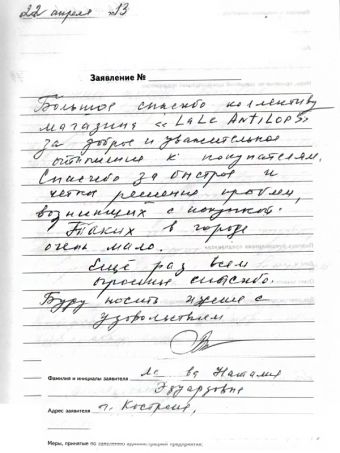 22 апреля 13
Заявление №
Большое спасибо коллективу
магазина «LALA ANTILOPS»
за доброе и уважительное
отношение к покупателям.
Спасибо за быстрое и
четкое решение проблем,
возникших с покупкой.
Таких в городе
очень мало.
Ещё раз всем
огромное спасибо.
Буду носить изделие с
удовольствием
Ла ва Наталия
Фамилия и инициалы заявителя
Эдуардовна
Адрес заявителя г. Кострома,
Меры, принятые по заявлению администрацией предприятия: